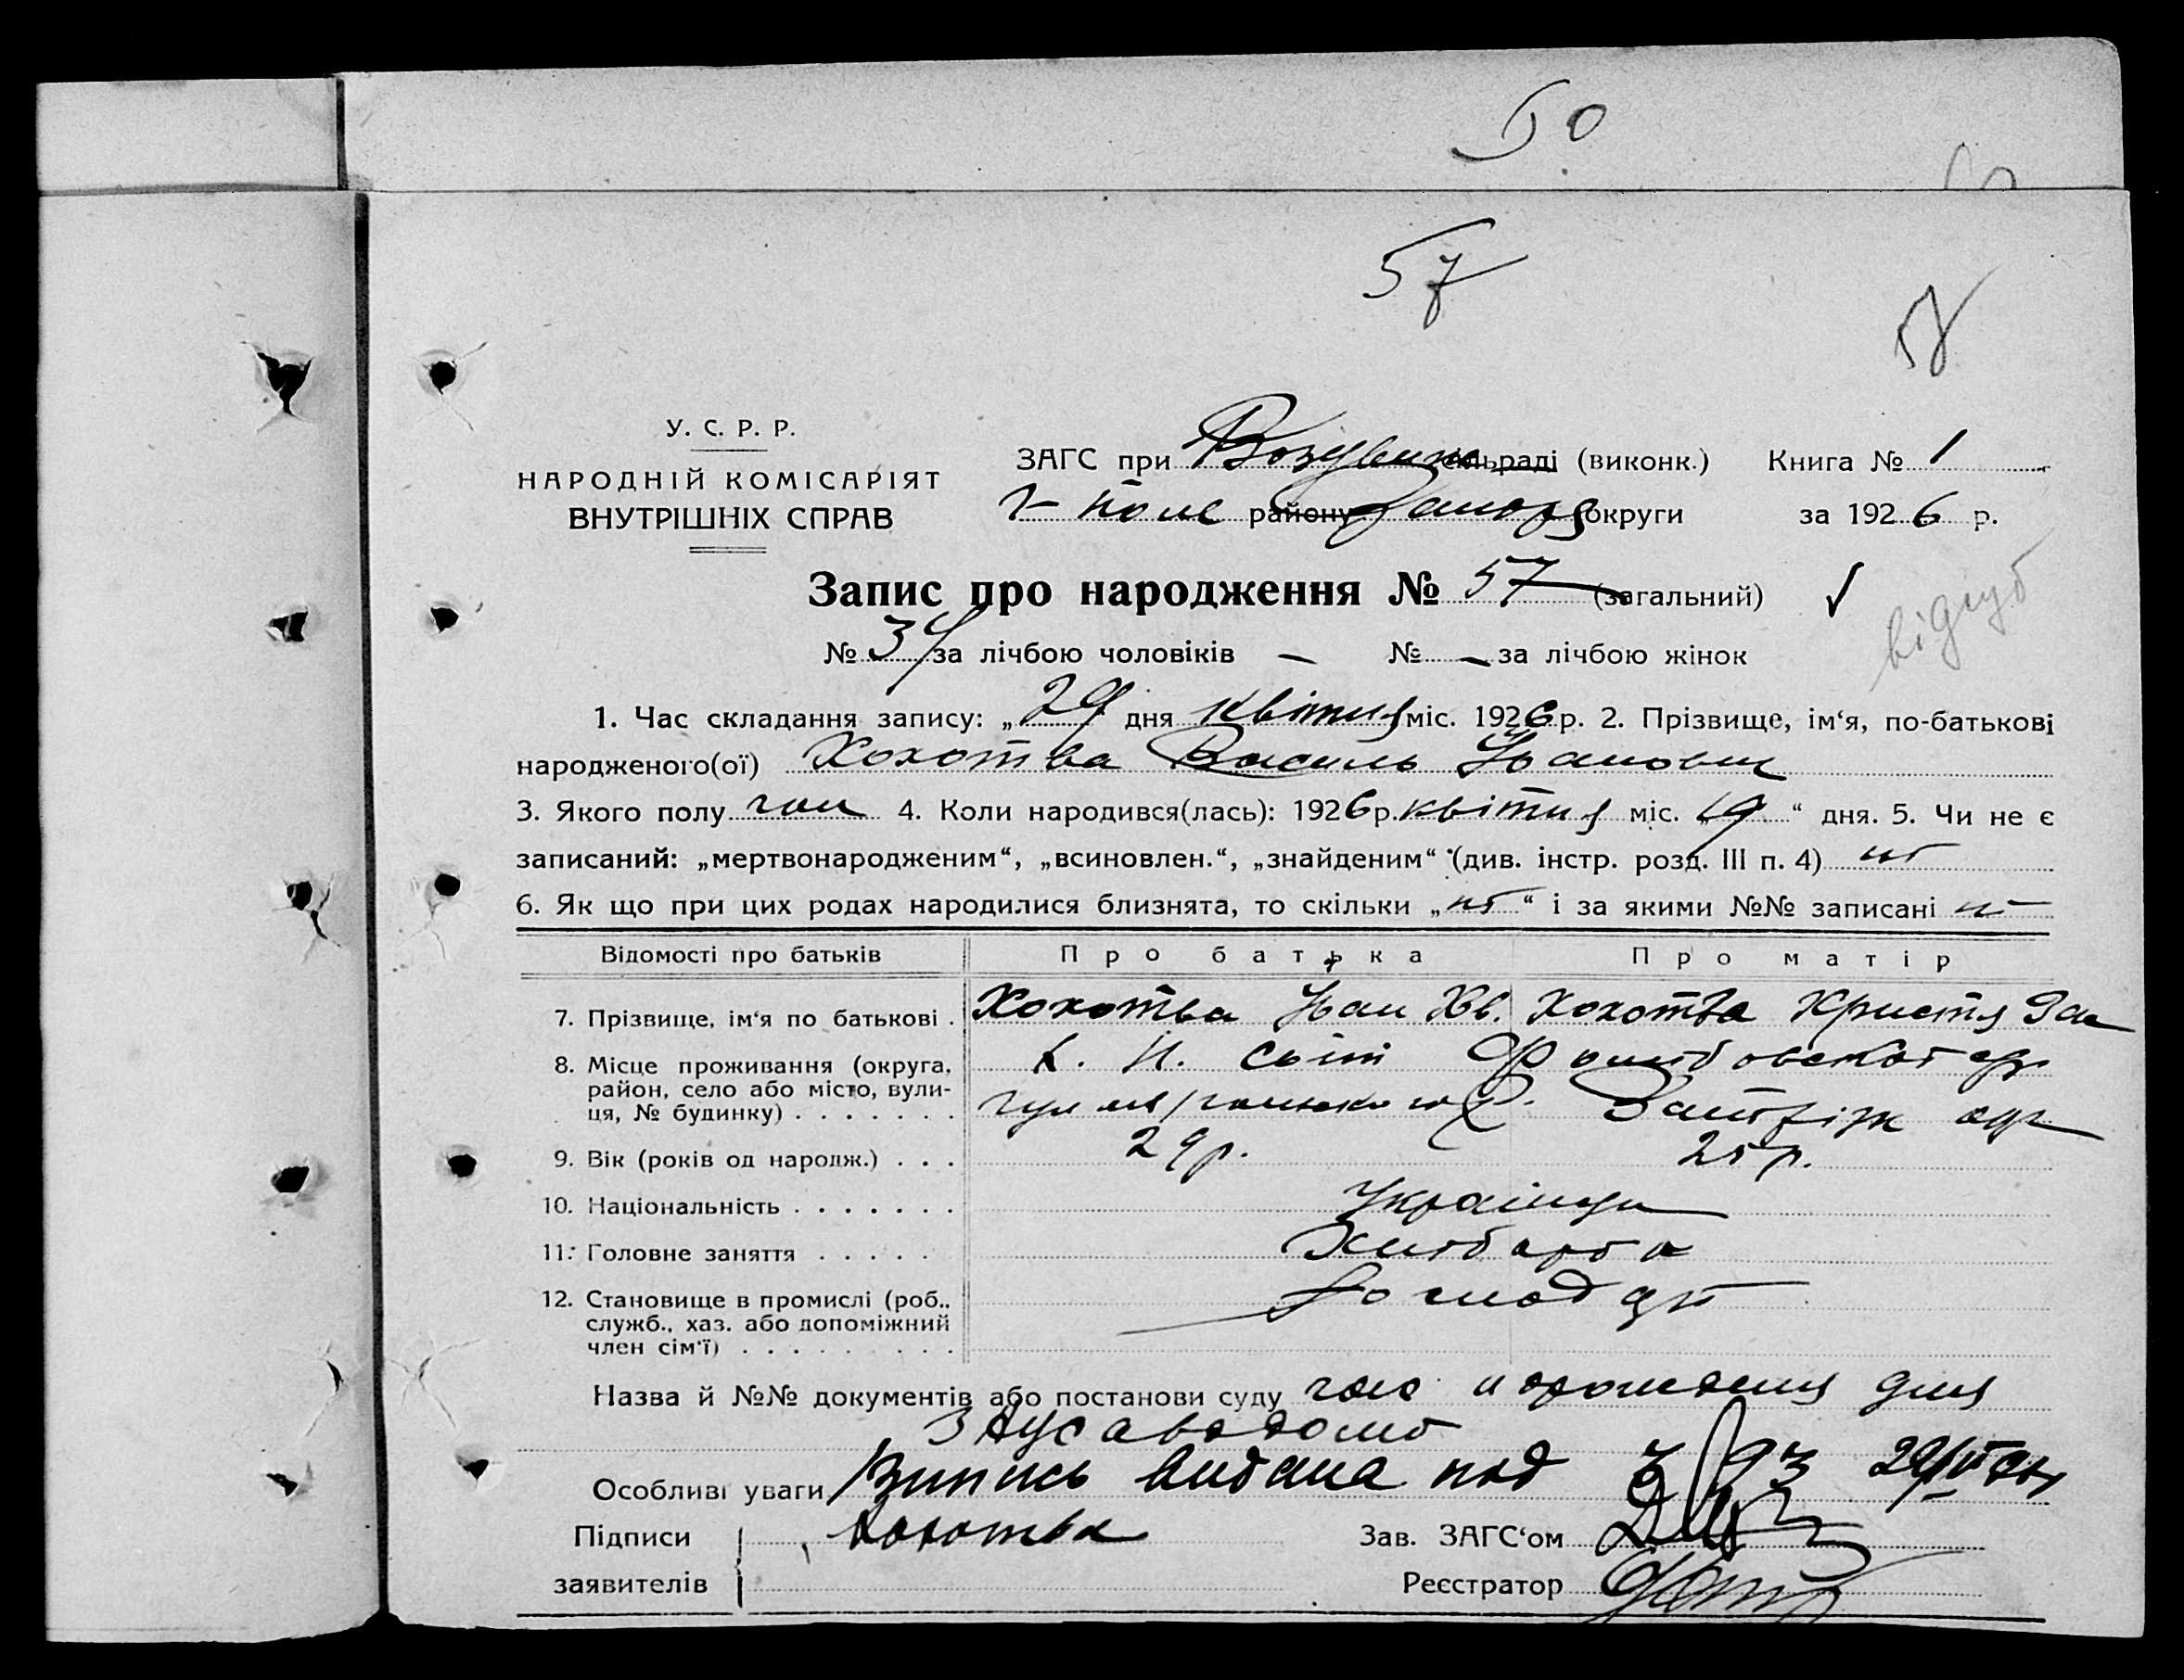 50
57
57
У. С. Р. Р.
НАРОДНІЙ КОМІСАРІЯТ
ВНУТРІШНІХ СПРАВ
ЗАГС при Воздвиж сільраді (виконк.) Книга № 1
Г-Поле району Запор округи за 1926 р.
Запис про народження № 57 (загальний)
№ 34 за лічбою чоловіків — № — за лічбою жінок
1. Час складання запису: „29 дня квітня міс. 1926 р. 2. Прізвище, ім‘я, по-батькові
народженого(ої) Хохотва Василь Іванович
3. Якого полу чол 4. Коли народився(лась): 1926 р. квітня міс. „19“ дня. 5. Чи не є
записаний: „мертвонародженим“, „всиновлен.“, „знайденим“ (див. інстр. розд. III п. 4) ні
6. Як що при цих родах народилися близнята, то скільки „ні“ і за якими №№ записані ні
Відомості про батьків Про батька Про матір
7. Прізвище, ім‘я по батькові . Хохотва Іван Хв. Хохотва Христя
8. Місце проживання (округа,
район, село або місто, вули-
ця, № будинку) . . . . . . .
9. Вік (років од народж.) . . . 29 р. 25 р.
10. Національність . . . . . . . Українци
11. Головне заняття . . . . . Хліборба
12. Становище в промислі (роб.,
служб., хаз. або допоміжний
член сім‘ї) . . . . . . . . .
Назва й №№ документів або постанови суду
Особливі уваги Випись видана под 93
Підписи Хохотва Зав. ЗАГС‘ом
заявителів Реєстратор